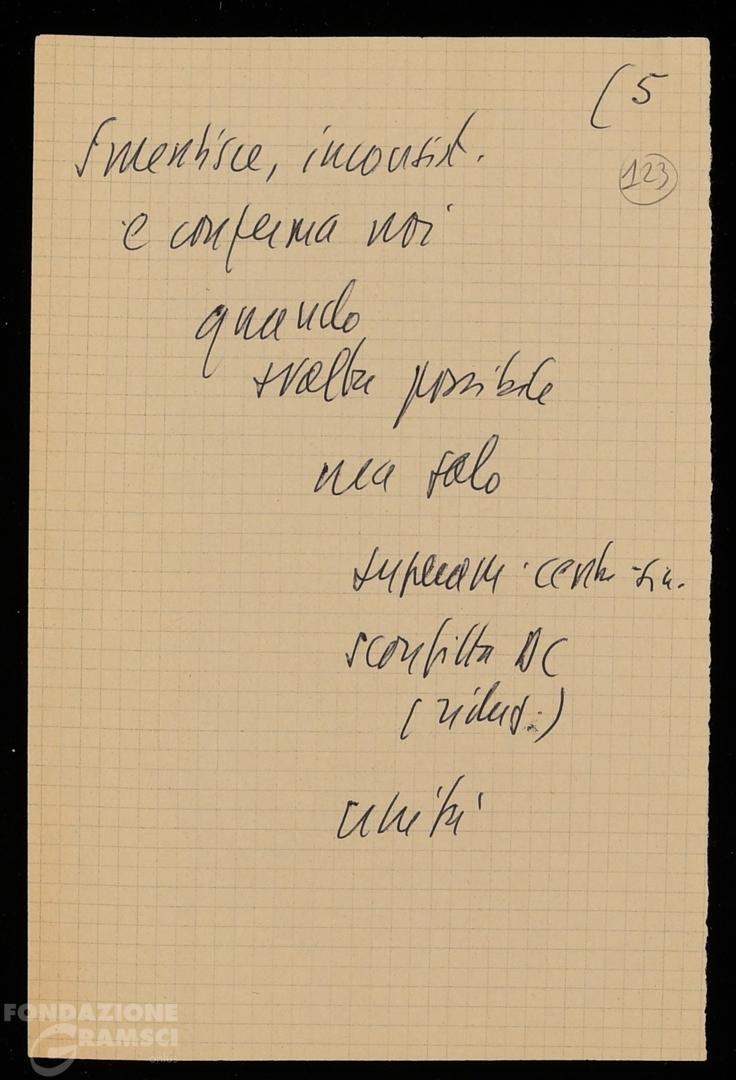 (5
123
Smentisce, inconsist.
e conferma noi
quando
svolta possibile
ma solo
superam. centro-sin.
sconfitta DC
(riduz.)
unità
FONDAZIONE
GRAMSCI
onlus